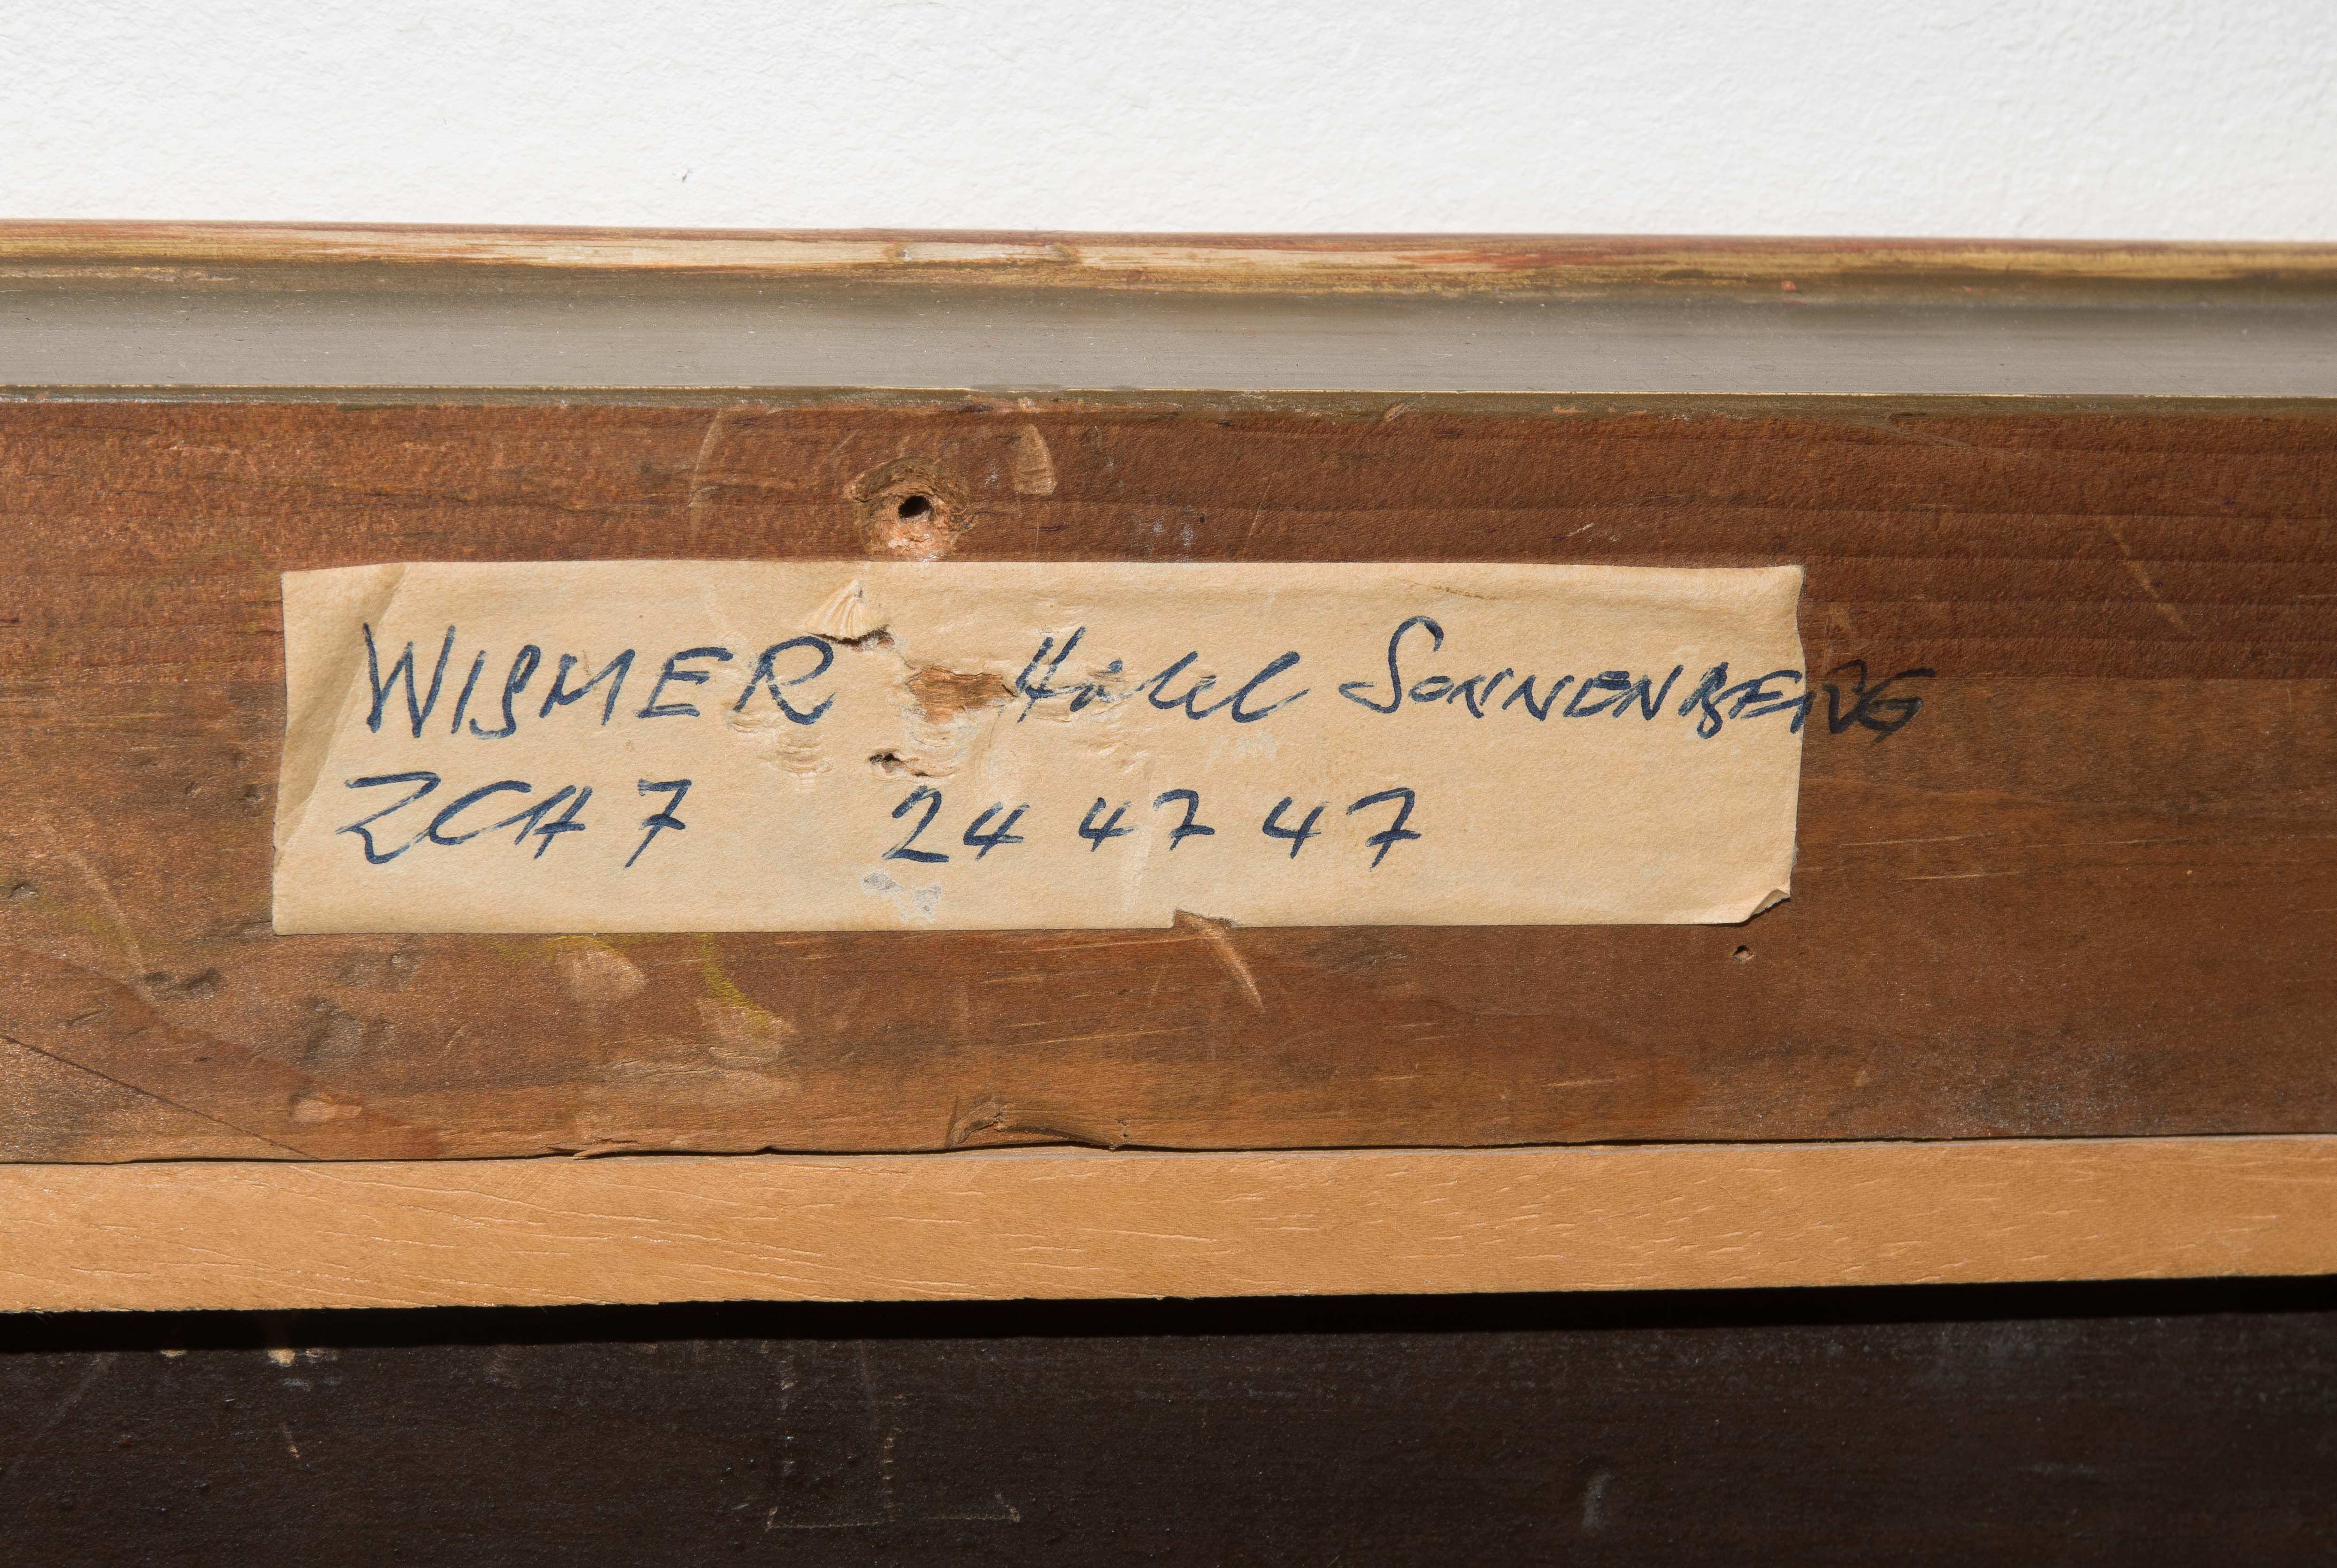 WISMER Hotel SONNENBERG
ZCH 7 24 47 47